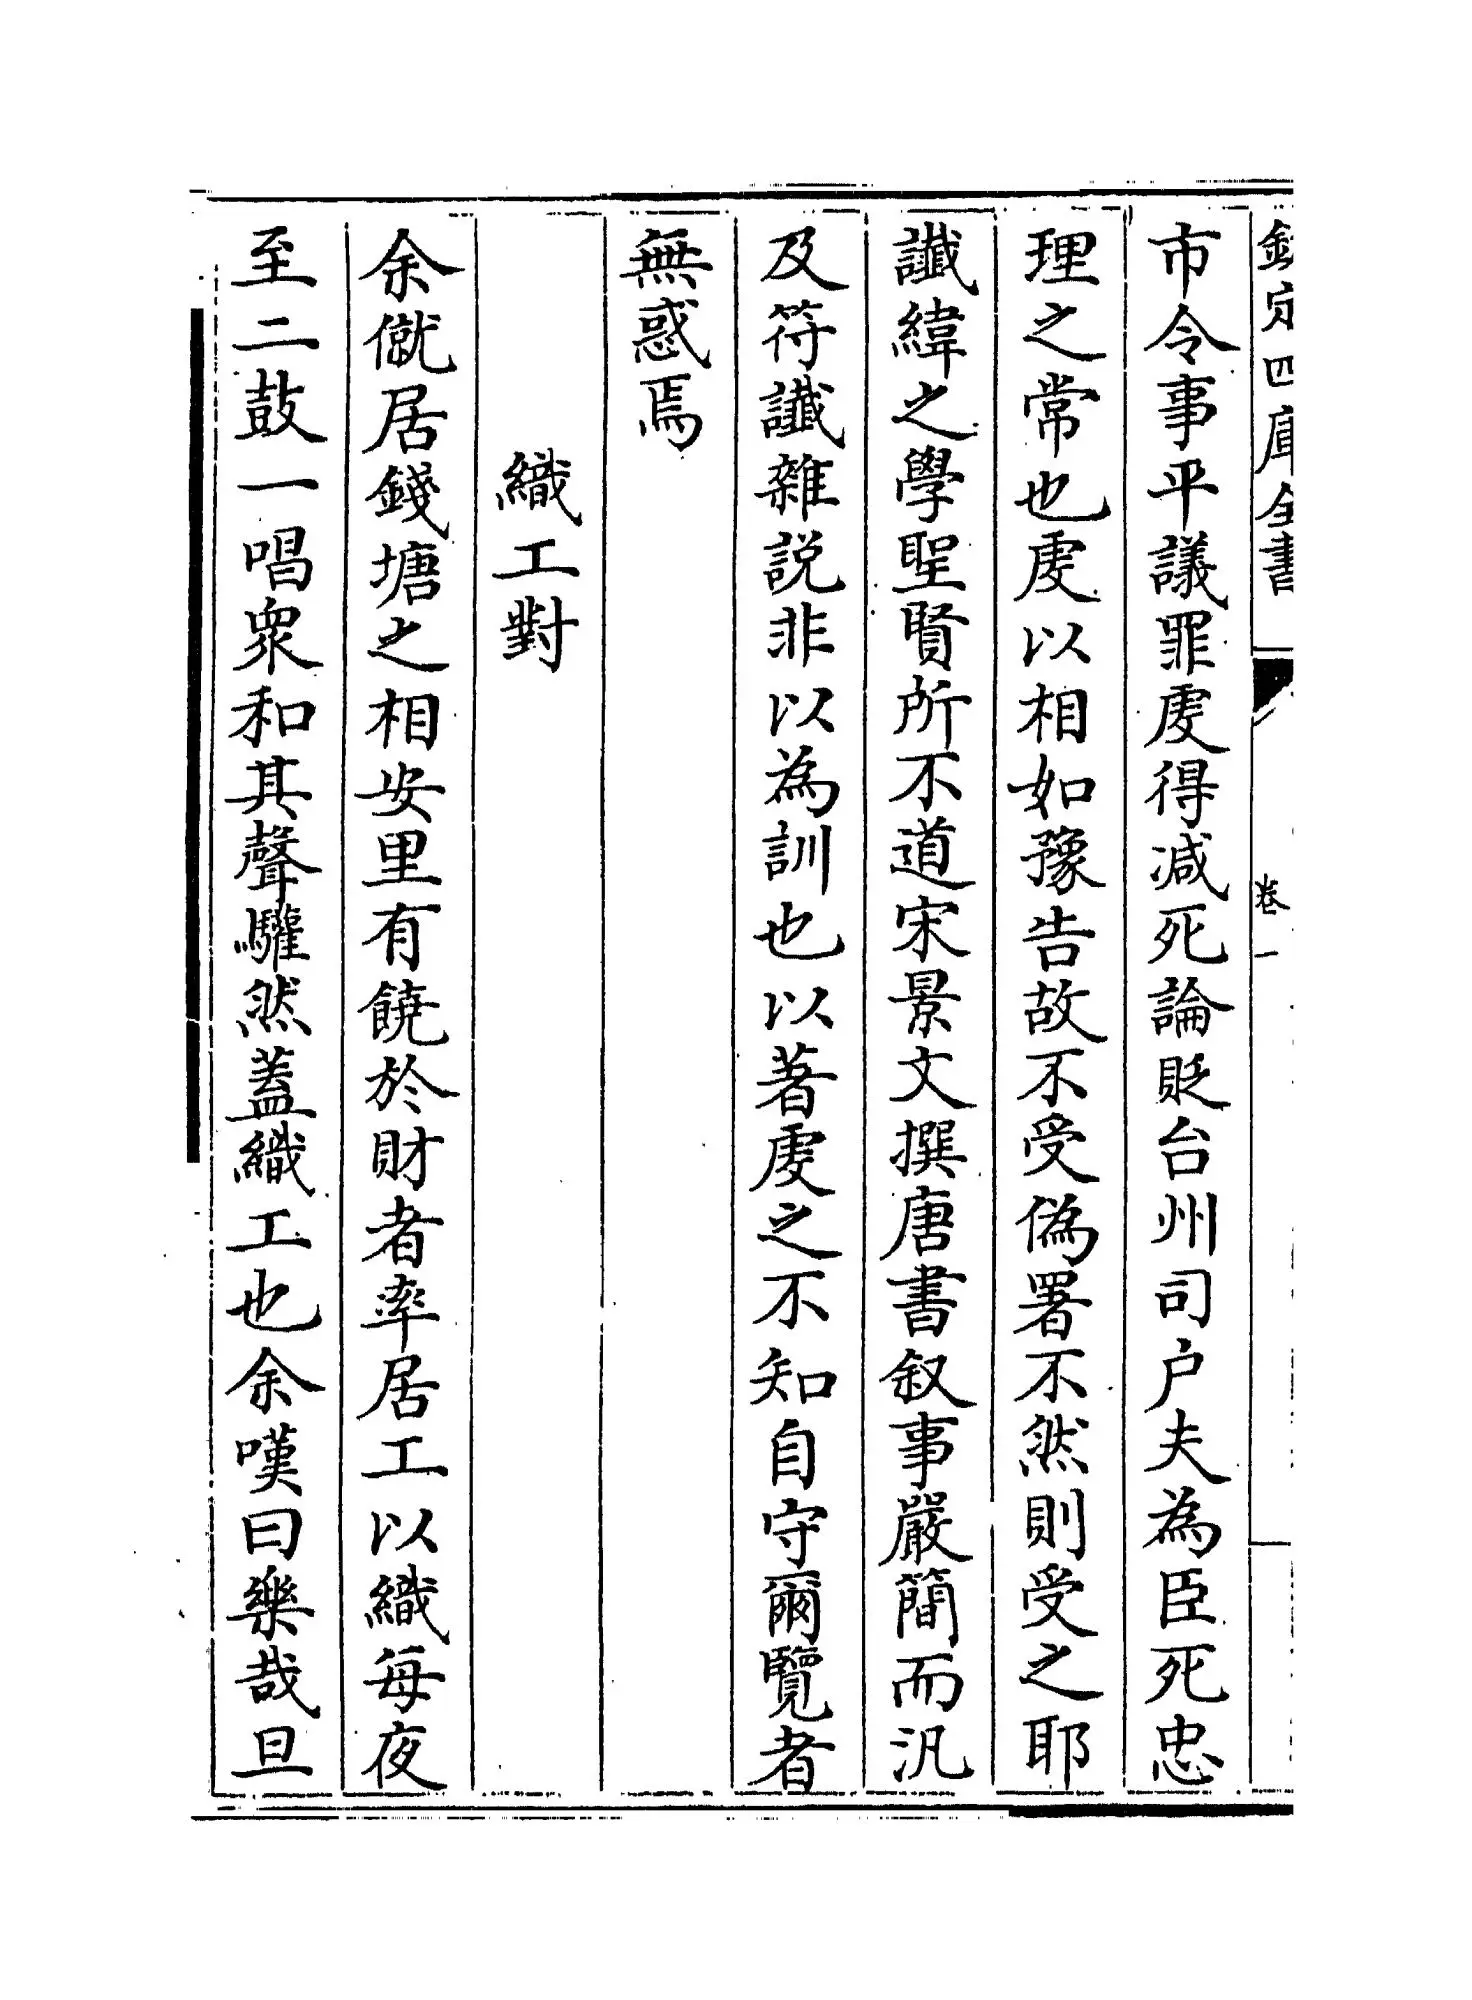 欽定四庫全書
卷一
市令事平議罪虔得減死論貶台州司户夫為臣死忠
理之常也虔以相如豫告故不受偽署不然則受之耶
讖緯之學聖賢所不道宋景文撰唐書叙事嚴簡而汎
及符讖雜説非以為訓也以著虔之不知自守爾覽者
無惑焉
織工對
余僦居錢塘之相安里有饒於財者率居工以織每夜
至二鼓一唱衆和其聲驩然蓋織工也余嘆曰樂哉旦